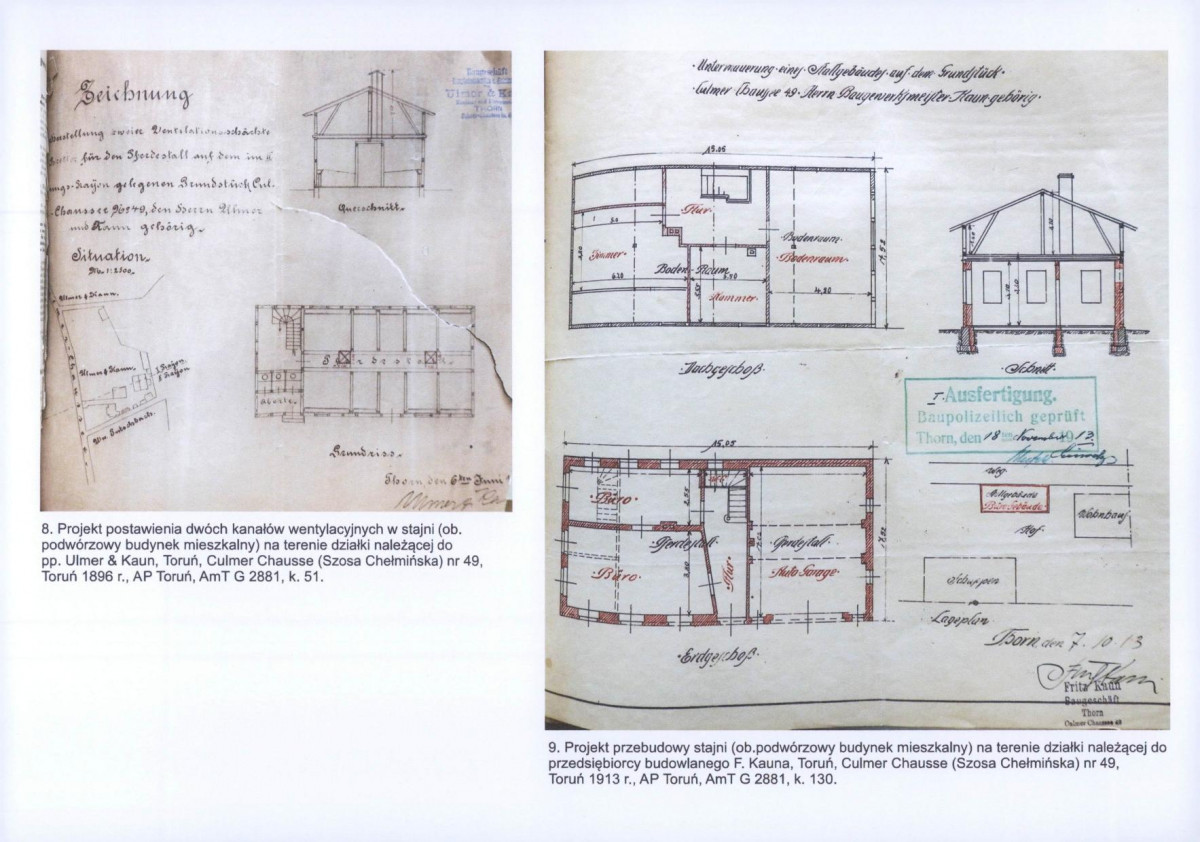 Zeichnung
zweier Ventilationsschächte
für den Pferdestall auf dem im
Rayon gelegenen Grundstück Cul-
Chaussee No 49, den Herrn Ulmer
und Kaun gehörig.
Situation.
1:2500.
Ulmer & Kaun.
Ulmer & Kaun.
Querschnitt.
Pferdestall
Aborte
Grundriss.
Thorn, den 6ten Juni
Ulmer & Ka
THORN
8. Projekt postawienia dwóch kanałów wentylacyjnych w stajni (ob.
podwórzowy budynek mieszkalny) na terenie działki należącej do
pp. Ulmer & Kaun, Toruń, Culmer Chausse (Szosa Chełmińska) nr 49,
Toruń 1896 r., AP Toruń, AmT G 2881, k. 51.
Untermauerung eines Stallgebäudes auf dem Grundstück
Culmer Chaussee 49 Herrn Baugewerksmeister Kaun gehörig.
15.05
Flur
Zimmer
Boden Raum
Kammer
Bodenraum
Bodenraum
6.20
5.40
4.80
Dachgeschoß
Schnitt
I. Ausfertigung.
Baupolizeilich geprüft
Thorn, den 18 ten November 1913.
Weg
Büro Gebäude
Wohnhaus
Hof
Schuppen
Lageplan
15,05
Büro
Pferdestall
Büro
Flur
Pferdestall
Auto Garage
Erdgeschoß
Thorn, den 7. 10. 13
Fritz Kaun
Baugeschäft
Thorn
Culmer Chaussee 49
9. Projekt przebudowy stajni (ob.podwórzowy budynek mieszkalny) na terenie działki należącej do
przedsiębiorcy budowlanego F. Kauna, Toruń, Culmer Chausse (Szosa Chełmińska) nr 49,
Toruń 1913 r., AP Toruń, AmT G 2881, k. 130.